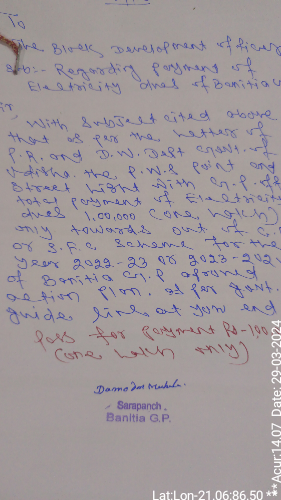 To
The Block Development officer
Sub:- Regarding payment of
Electricity dues of Banitia
Sir,
With Subject cited above
that as per the Letter of
P.R. and D.W. Dept Govt. of
Odisha. the P.W.S point and
Street Light with G.P. 
total payment of Electricity
dues 1,00,000 (one lakh)
only towards out of C.
or S.F.C Scheme for the
year 2022-23 or 2023-202
of Banitia G.P
action plan. as per govt.
guide line at your end
Pass for payment Rs-100
(one lakh only)
Sarapanch,
Banitia G.P.
Lat:Lon-21.06:86.50
**Acur:14.07 Date: 29-03-2024